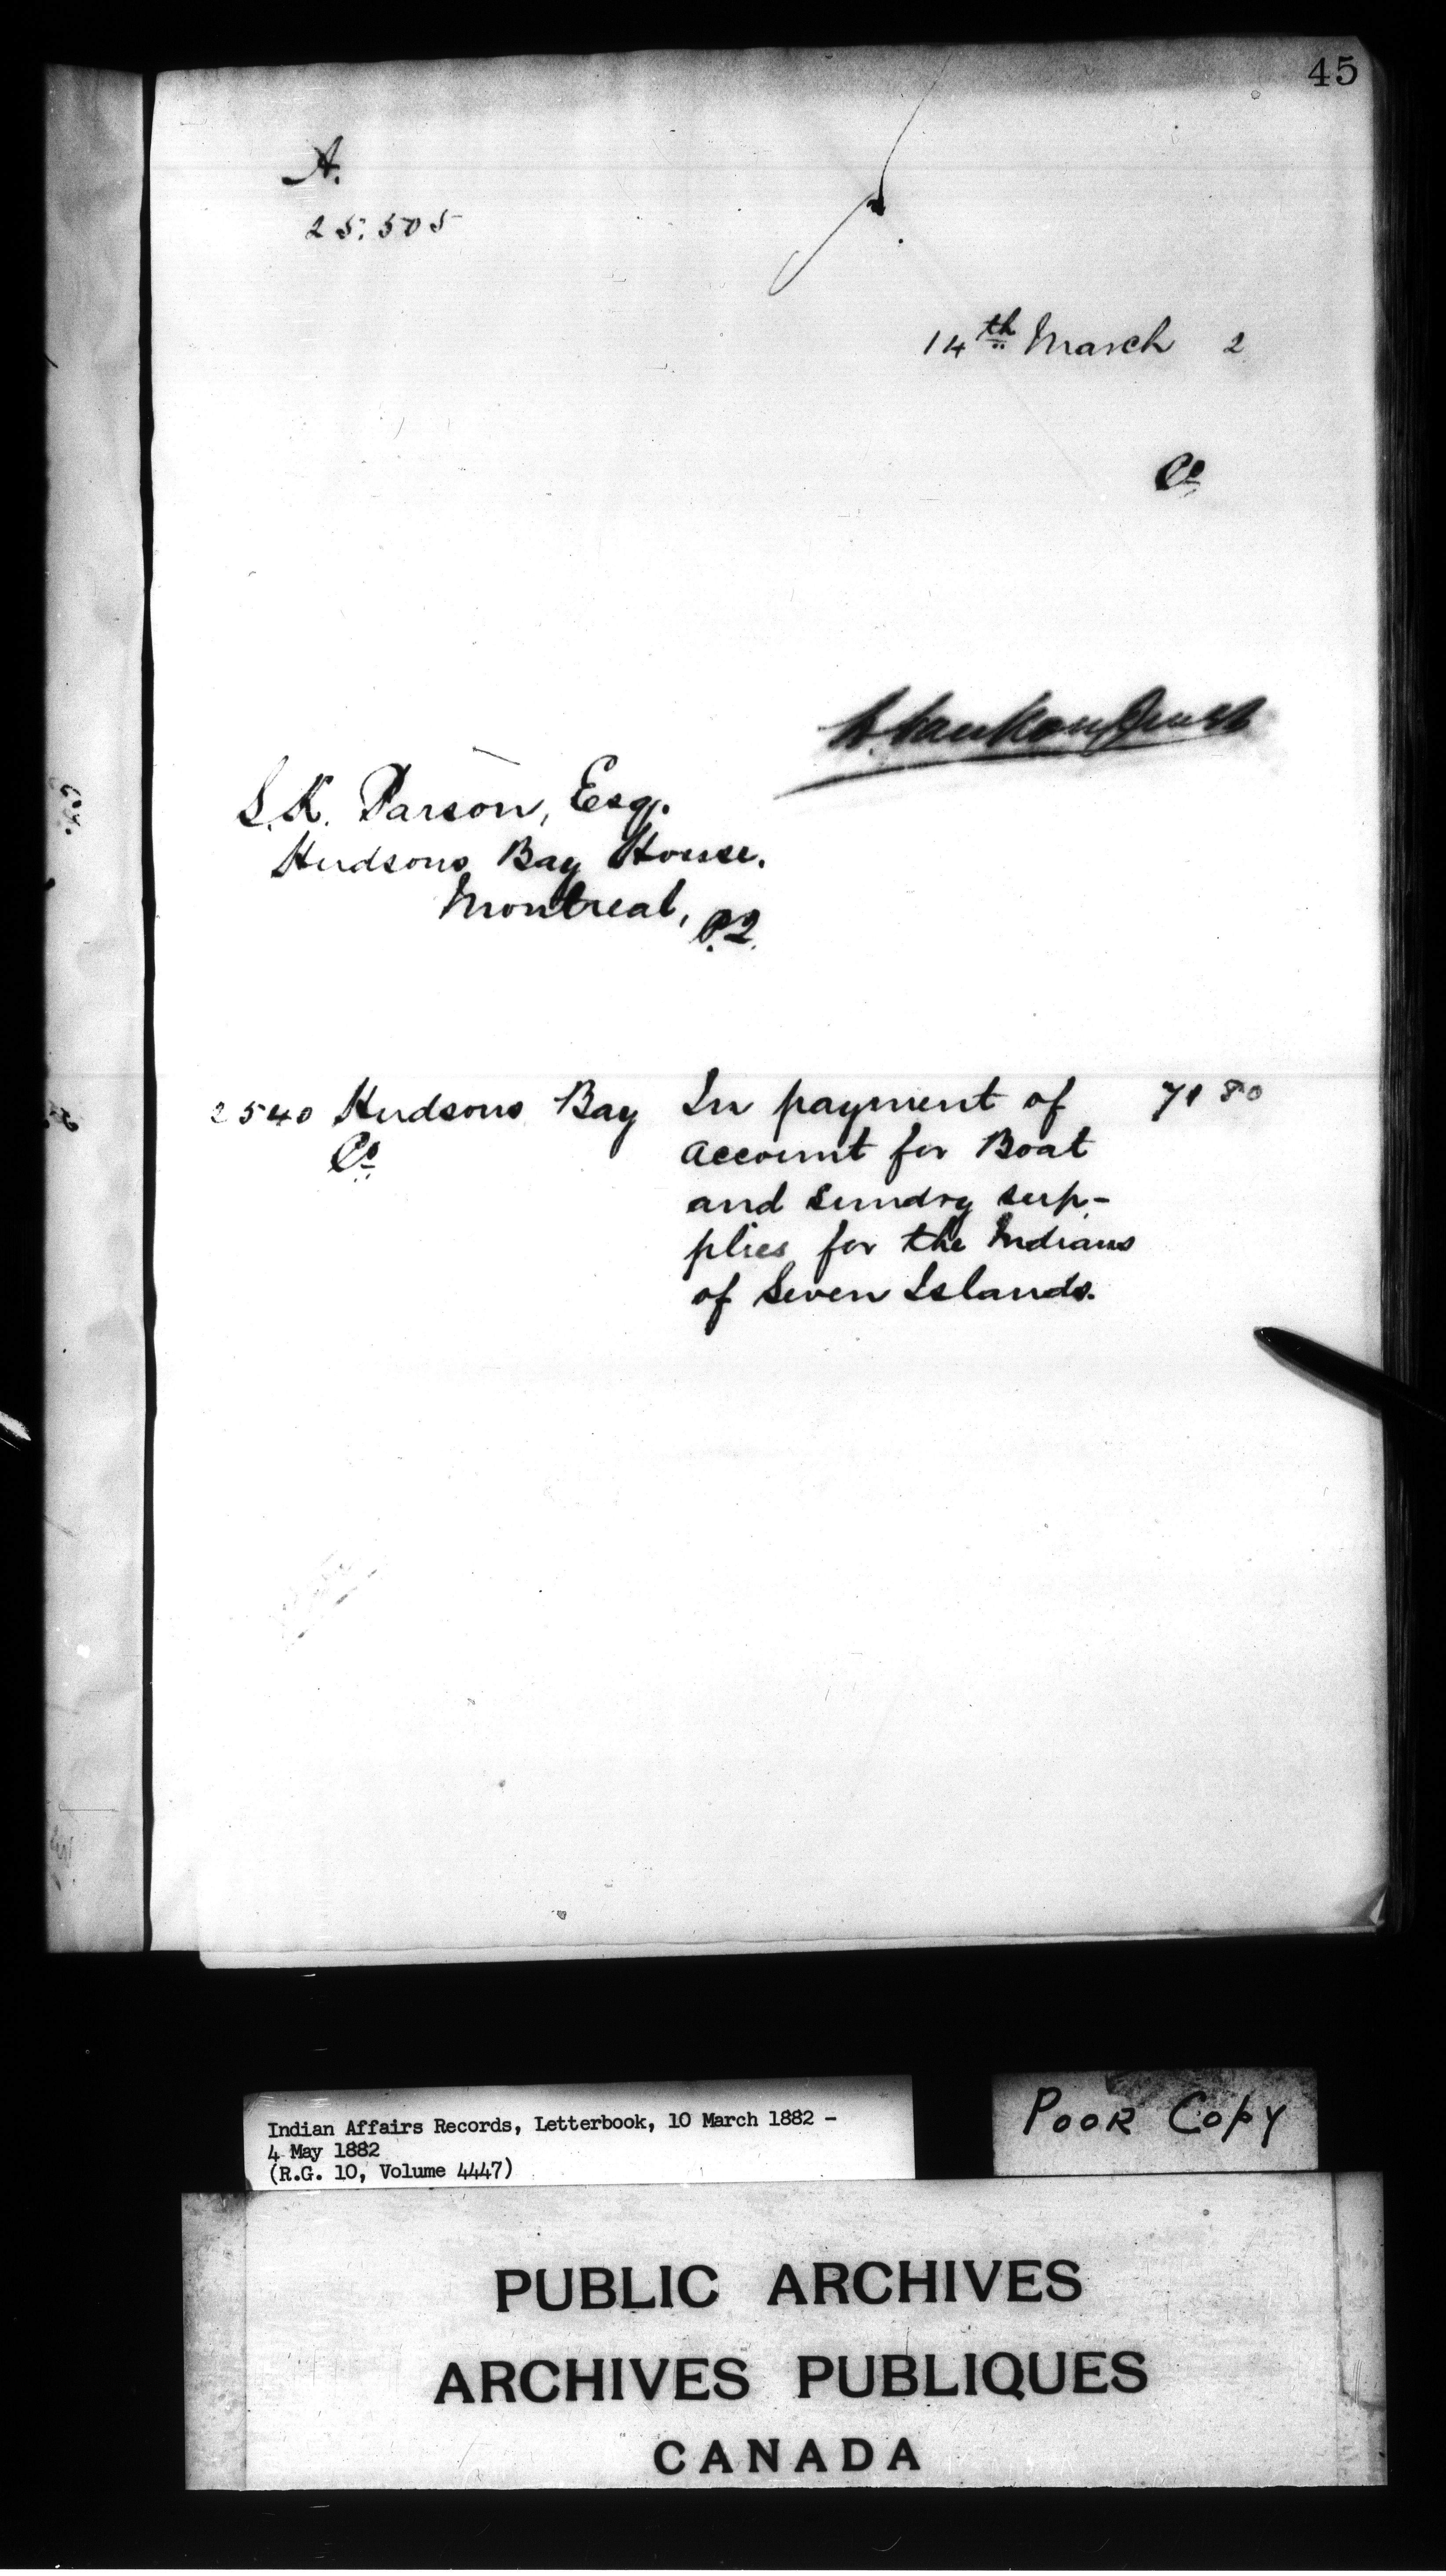 45
A.
25.505
14th March 2
Co
L. Vankoughnet
S.K. Parson, Esq.
Hudsons Bay House.
Montreal, P.Q.
2540 Hudsons Bay Co In payment of 71 80
account for Boat
and sundry sup-
plies for the Indians
of Seven Islands.
Indian Affairs Records, Letterbook, 10 March 1882 -
4 May 1882
(R.G. 10, Volume 4447)
POOR COPY
PUBLIC ARCHIVES
ARCHIVES PUBLIQUES
CANADA